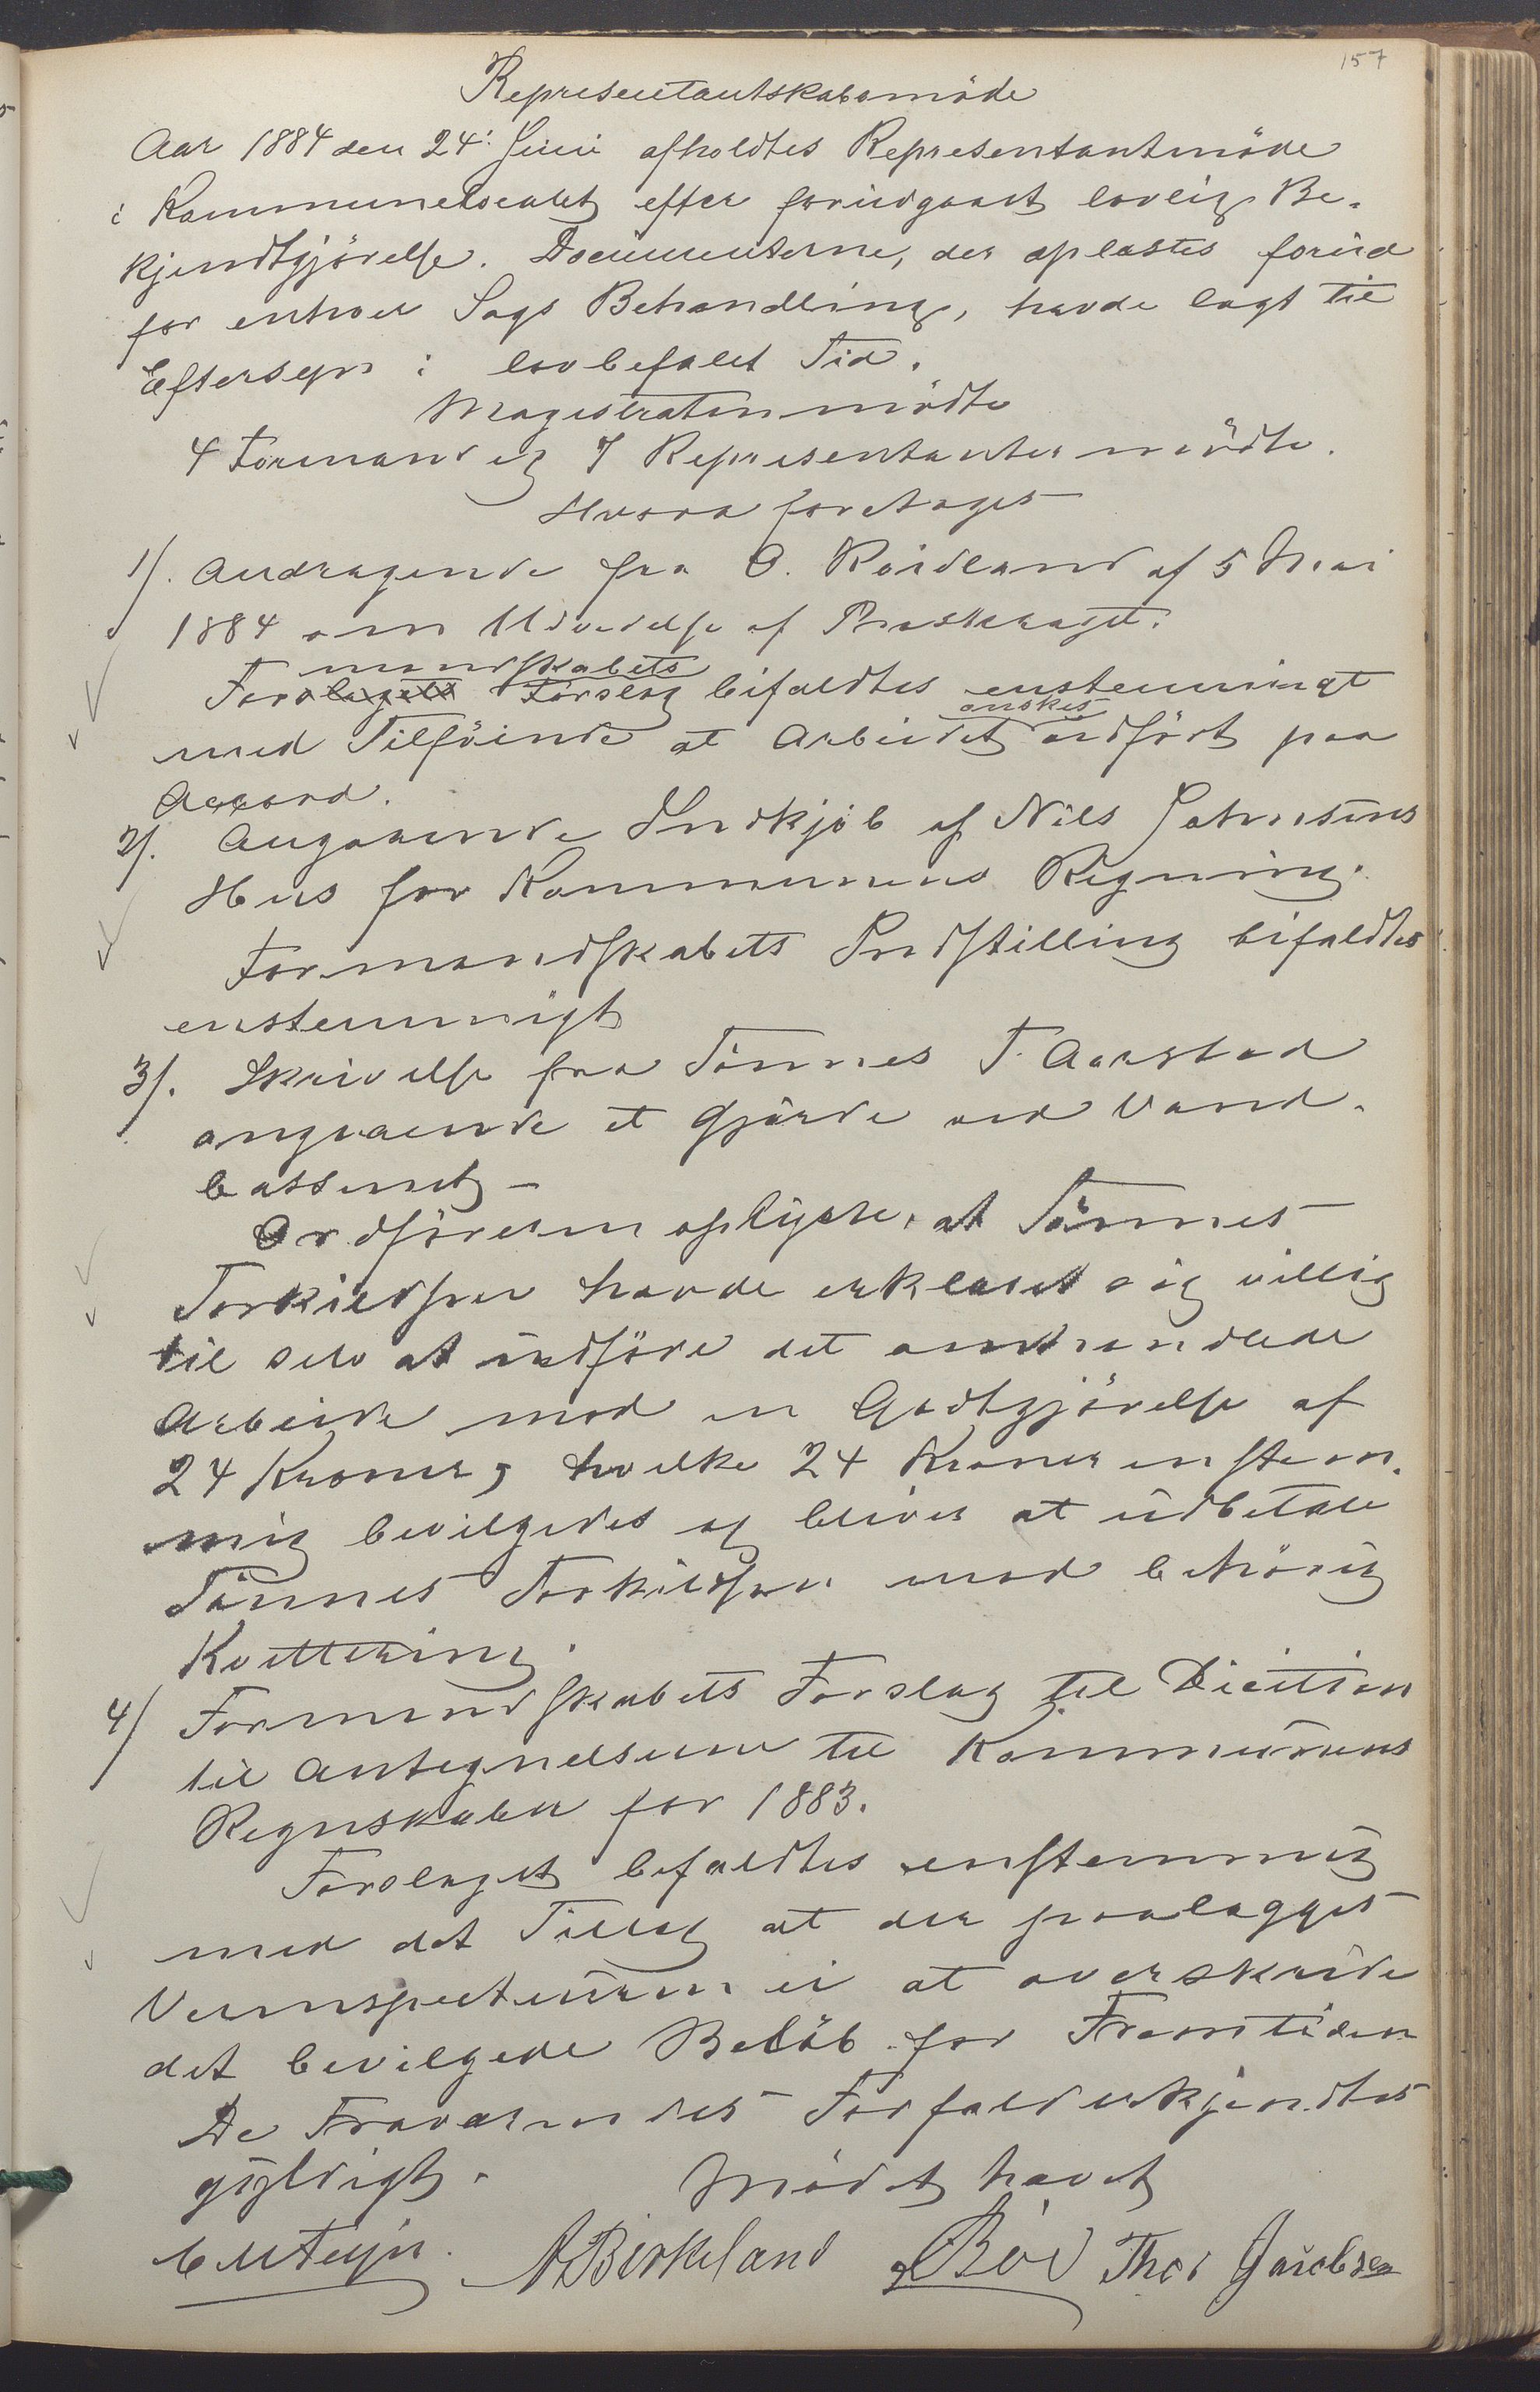 157
Representantskabsmöde
Aar 1884 den 24: Juni afholdtes Representantmöde
i Kommunelocalet efter forudgaaet lovlig Be-
kjendtgjörelse. Documenterne, der oplæstes forud
for enhver Sags Behandling, havde lagt til
Eftersyn i lovbefalet Tid.
Magistraten mödte
4 Formænd og 7 Representanter mödte.
Hvora foretages
1/. Andragende fra O. Röidland af 5 Mai
1884 om Udvidelse af
mandskabets
Forslagets Forslag bifaldtes enstemmigt
önskes
med Tilföiende at Arbeidet udfört paa
Accord.
2/. Angaaende Indkjöb af Nils Johnsens
Hus for Kommunens Regning.
Formandskabets Indstilling bifaldtes
enstemmigt
3/. Skrivelse fra Tönnes T. Aarstad
angaaende et Gjærde ved Vand-
bassinet –
Ordföreren oplyste, at Tönnes
Torkildsen havde erklæret sig villig
til selv at udföre det omhandlede
Arbeide mod en Godtgjörelse af
24 Kroner, hvilke 24 Kroner enstem-
mig bevilgedes og bliver at udbetale
Tönnes Torkildsen mod behörig
Kvittering.
4/ Formandskabets Forslag til Dicition
til Antegnelserne til Kommunens
Regnskaber for 1883.
Forslaget bifaldtes enstemmig
med det Tillæg at der paalægges
Veiinspecteuren ei at overskride
det bevilgede Belöb for Fremtiden
De Fraværendes Forfald erkjendtes
gyldigt. Mödet hævet
ABirkeland Thor Jacobsen